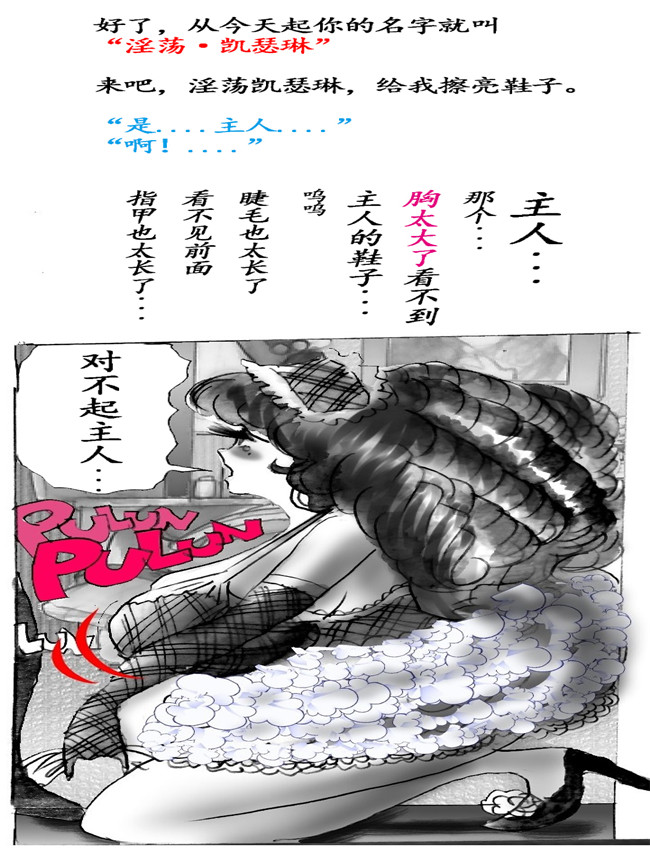 好了，从今天起你的名字就叫
“淫荡·凯瑟琳”
来吧，淫荡凯瑟琳，给我擦亮鞋子。
“是....主人....”
“啊！....”
主人…
那个…
胸太大了看不到
主人的鞋子…
呜呜
睫毛也太长了
看不见前面
指甲也太长了…
对不起主人…
PULUN
PULUN